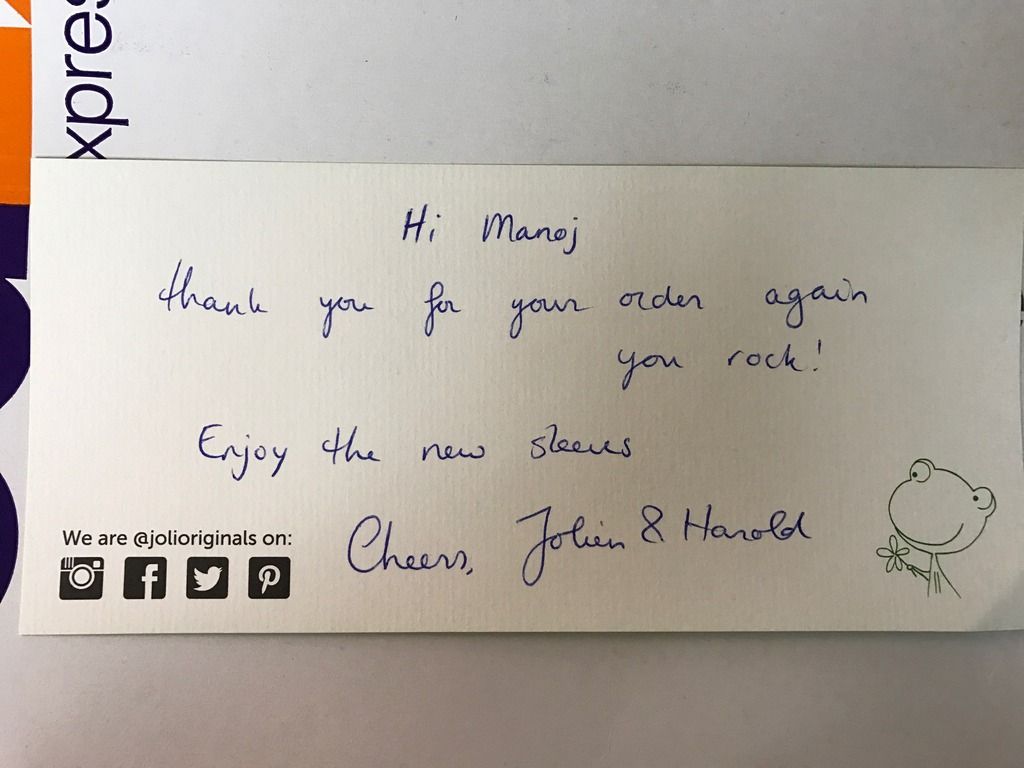 xpres
Hi Manoj
thank you for your order again
you rock!
Enjoy the new sleeves
Cheers, Jolien & Harold
We are @jolioriginals on: